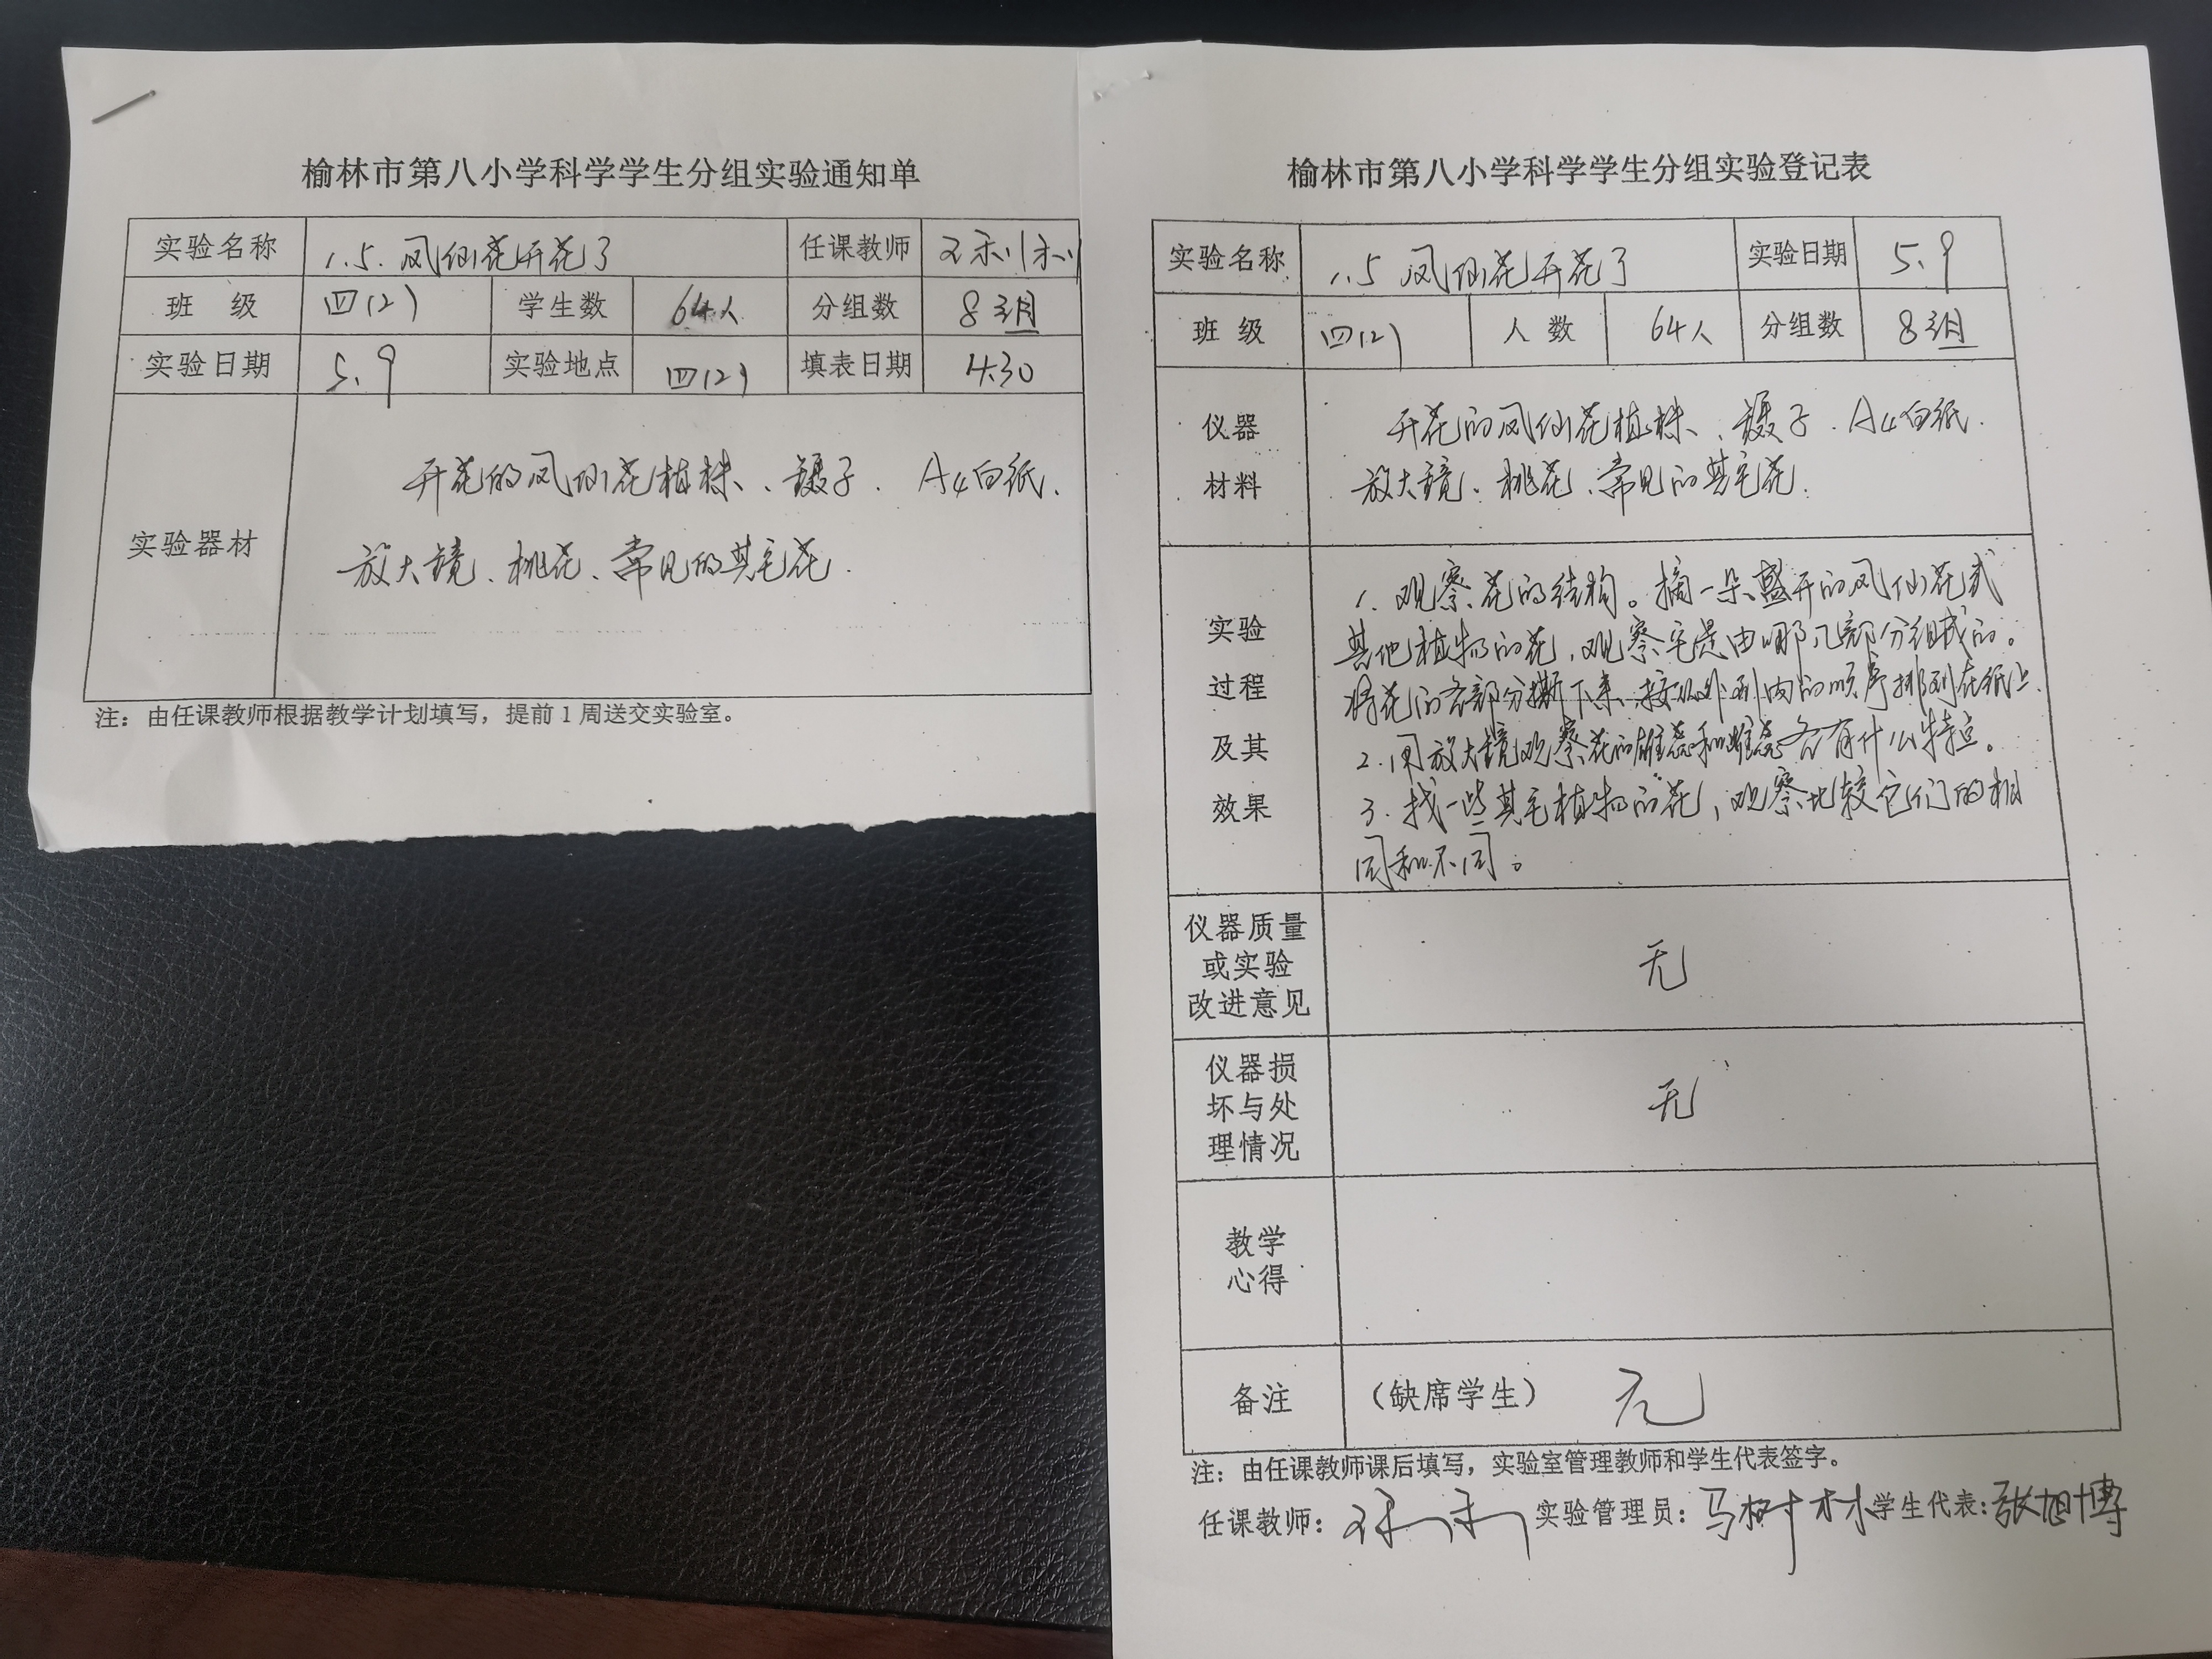 榆林市第八小学科学学生分组实验通知单
实验名称 1.5.凤仙花开花了 任课教师 王利利
班 级 四(2) 学生数 64人 分组数 8组
实验日期 5.9 实验地点 四(2) 填表日期 4.30
实验器材
开花的凤仙花植株、镊子.A4白纸.
放大镜、桃花、常见的其它花.
注：由任课教师根据教学计划填写，提前1周送交实验室。
榆林市第八小学科学学生分组实验登记表
实验名称 1.5 凤仙花开花了 实验日期 5.9
班 级 四(2) 人 数 64人 分组数 8组
仪器
材料
开花的凤仙花植株、镊子.A4白纸.
放大镜、桃花、常见的其它花.
实验
过程
及其
效果
1.观察花的结构。摘一朵盛开的凤仙花或
其他植物的花,观察它是由哪几部分组成的。
将花的各部分撕下来,按从外到内的顺序排列在纸上.
2.用放大镜观察花的雄蕊和雌蕊各有什么特点。
3.找一些其它植物的花,观察比较它们的相
同和不同。
仪器质量
或实验
改进意见
无
仪器损
坏与处
理情况
无
教学
心得
备注 （缺席学生） 无
注：由任课教师课后填写，实验室管理教师和学生代表签字。
任课教师：王利利 实验管理员：马树林 学生代表：张旭博